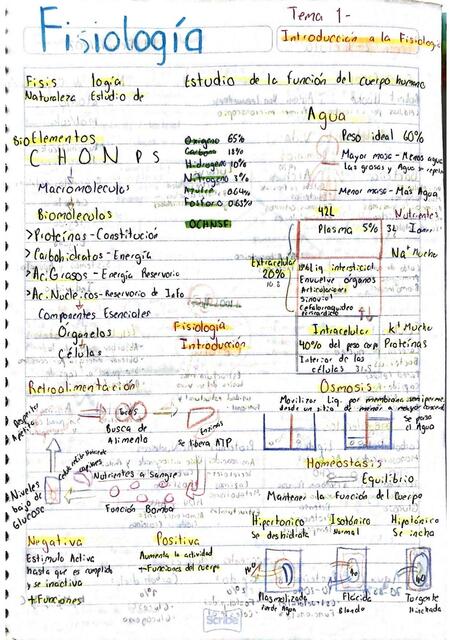 Fisiología
Tema 1-
Introducción a la Fisiología
Fisis logía
Naturaleza Estudio de
Estudio de la función del cuerpo humano
BioElementos
C H O N P S
Macromoleculas
Biomoleculas
>Proteínas-Constitución
>Carbohidratos-Energía
>Ac.Grasos-Energía Reservorio
>Ac.Nucleicos-Reservorio de Info
Componentes Esenciales
Organelos
Células
Oxigeno 65%
Carbono 18%
Hidrogeno 10%
Nitrogeno 3%
Azufre 0.64%
Fosforo 0.63%
OCHNSF
Fisiología
Introducción
Agua
Peso ideal 60%
Mayor masa-Menos agua
las grasas y Agua se repelen
Menor masa-Más Agua
42L
Nutrientes
Plasma 5% 3L
Na+ Mucho
Extracelular
20%
Liq. intersticial
Envuelve órganos
Articulaciones
Sinovial
Cefalorraquideo
Intracelular
40% del peso corp
Interior de las
células
K+ Mucho
Proteínas
Retroalimentación
Busca de
Alimento
Enzimas
Se libera ATP
Nutrientes a Sangre
Función Bomba
Niveles
bajo de
Glucosa
Osmosis
Movilizar Liq. por membrana semiperme.
desde un sitio de menor a mayor
Se pasa
el Agua
Homeostasis
Equilibrio
Mantener la Función del Cuerpo
Negativa
Estimulo Activa
hasta que es cumplido
y se inactiva
+Funciones
Positiva
Aumenta la actividad
+Funciones del cuerpo
Hipertonico
Se deshidrata
Isotónico
Normal
Hipotónico
Se incha
H2O
Plasmolizada
Pierde Agua
Flácida
Blanda
Turgente
Hinchada
Scribe